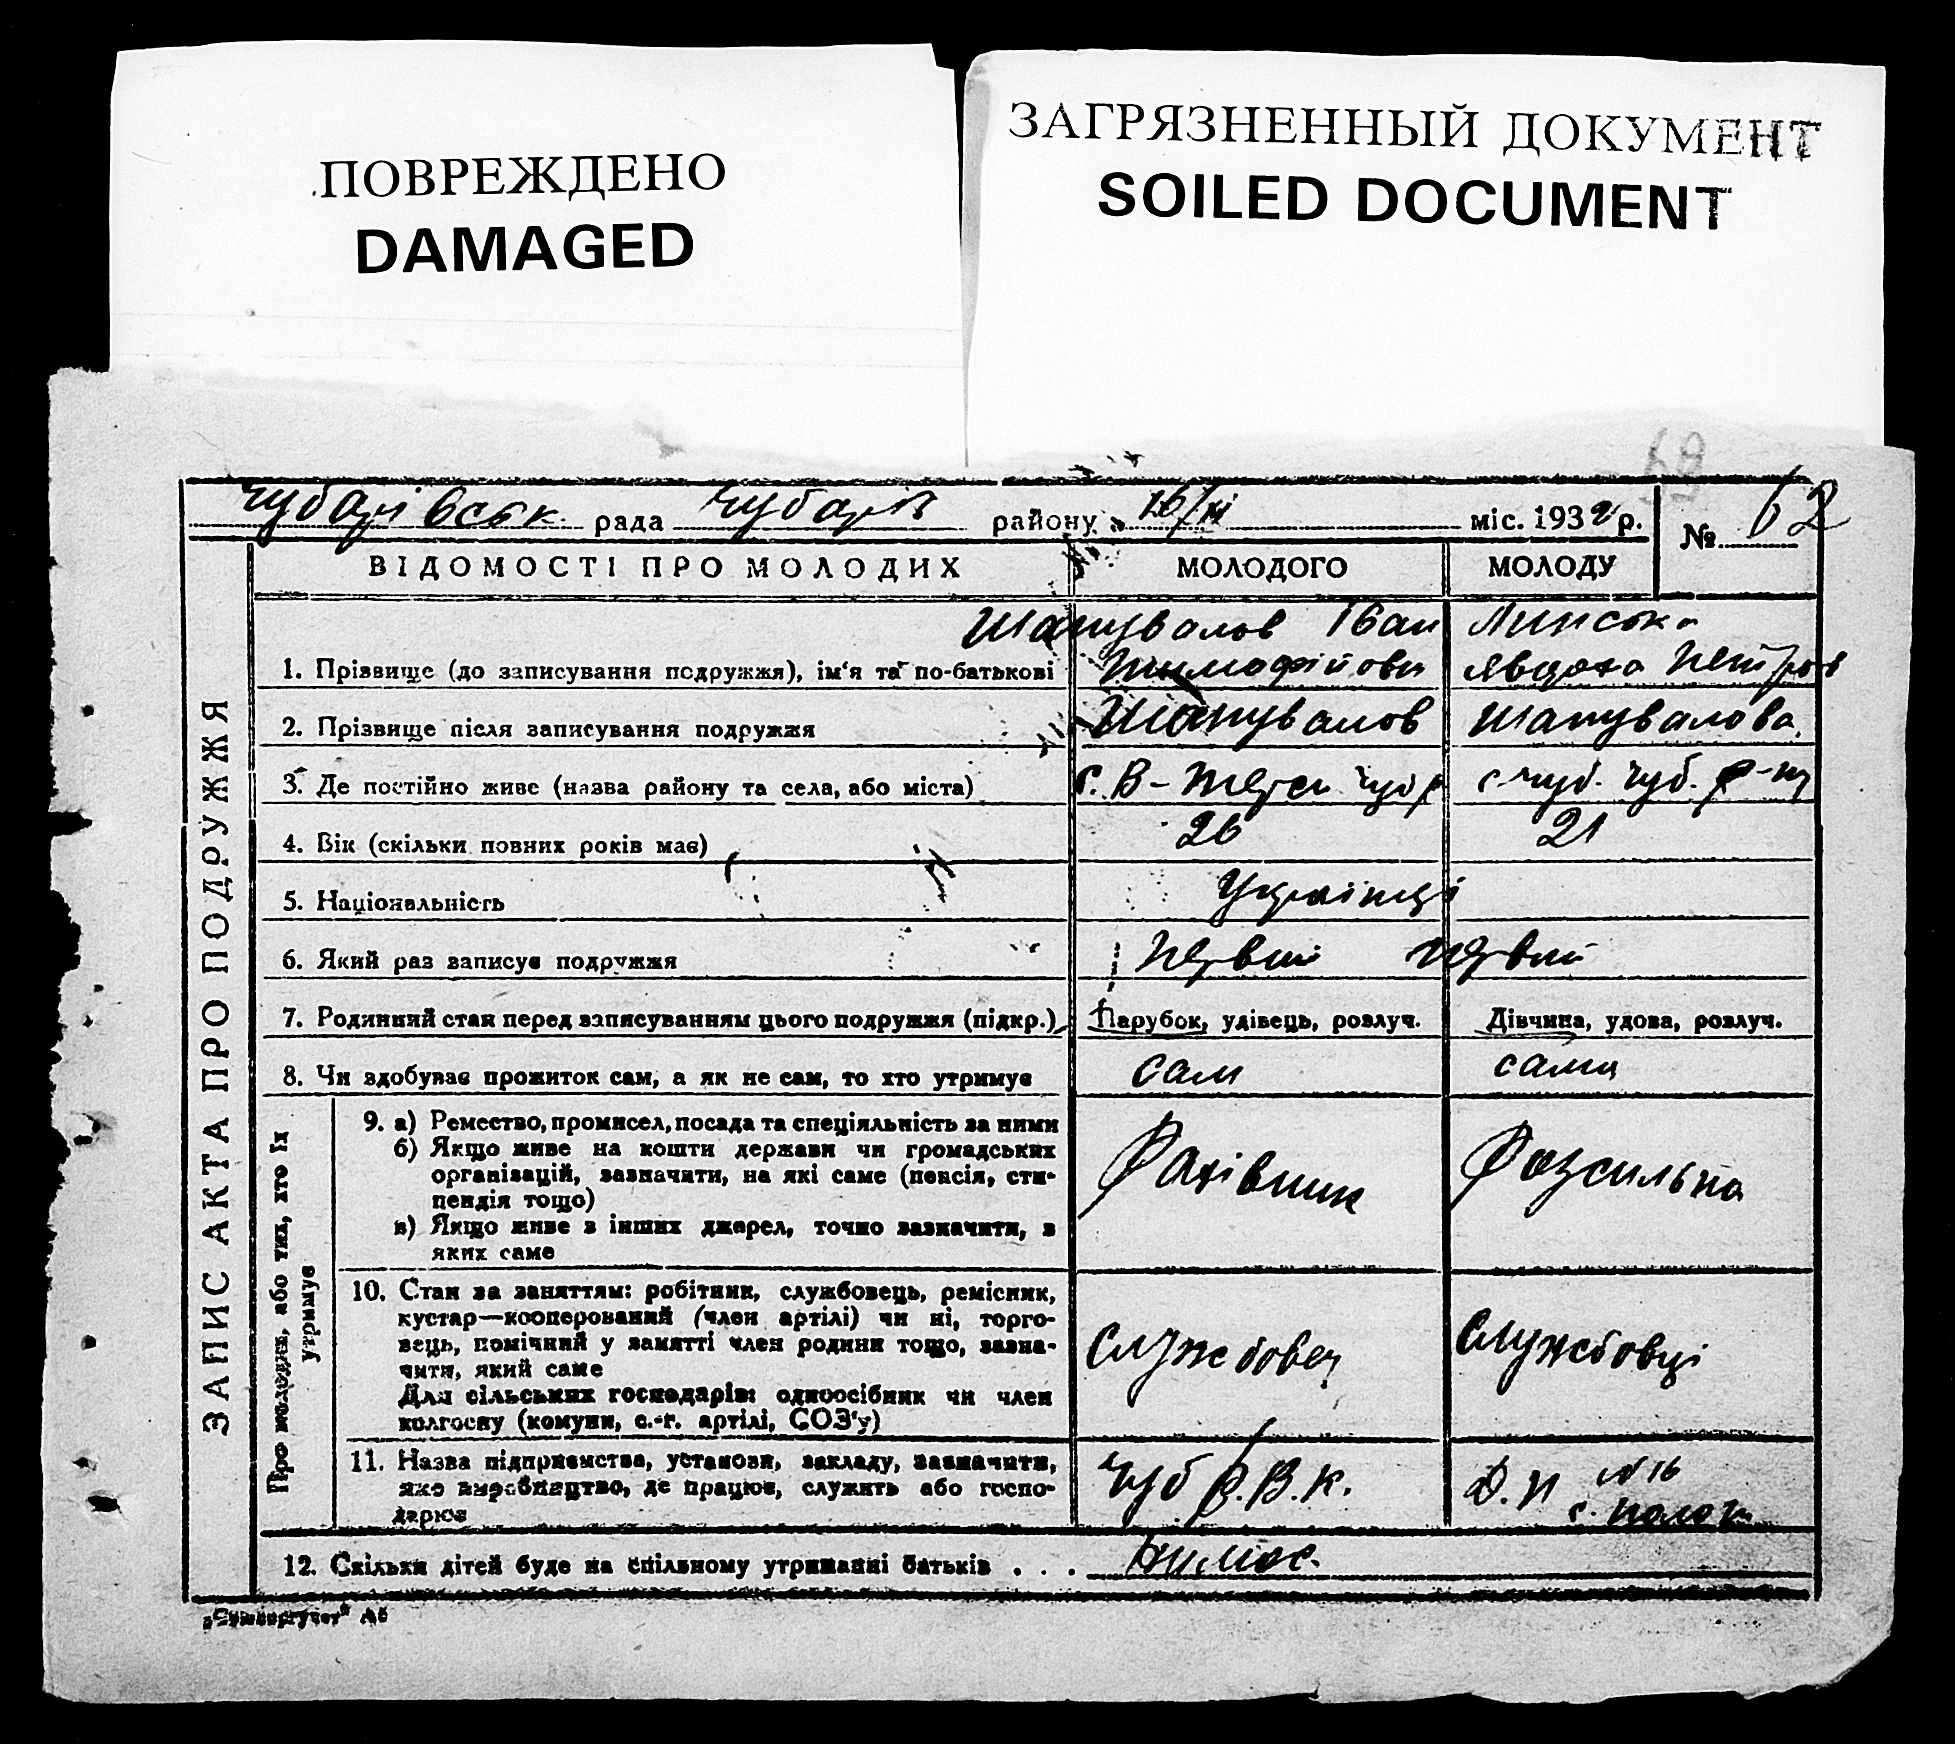 ПОВРЕЖДЕНО
DAMAGED
ЗАГРЯЗНЕННЫЙ ДОКУМЕНТ
SOILED DOCUMENT
Чубарівськ. рада Чубарів району 16/ міс. 1932 р. № 62
ЗАПИС АКТА ПРО ПОДРУЖЖЯ
ВІДОМОСТІ ПРО МОЛОДИХ МОЛОДОГО МОЛОДУ
Шапувалов Іван
1. Прізвище (до записування подружжя), ім'я та по-батькові Тимофійови Явдоха Петров
2. Прізвище після записування подружжя Шапувалов Шапувалова
3. Де постійно живе (назва району та села, або міста) с. В- с. Чуб. Чуб. р-ну
4. Вік (скільки повних років має) 26 21
5. Національність Українці
6. Який раз записує подружжя первий первий
7. Родинний стан перед записуванням цього подружжя (підкр.) Парубок, удівець, розлуч. Дівчина, удова, розлуч.
8. Чи здобуває прожиток сам, а як не сам, то хто утримує сам сама
Про молодих, або тих, хто їх
утримує
9. а) Ремество, промисел, посада та спеціяльність за ними
б) Якщо живе на кошти держави чи громадських
організацій, зазначити, на які саме (пенсія, сти-
пендія тощо)
в) Якщо живе з інших джерел, точно зазначити, з
яких саме
Розсильна
10. Стан за заняттям: робітник, службовець, ремісник,
кустар—кооперований (член артілі) чи ні, торго-
вець, помічний у занятті член родини тощо, зазна-
чити, який саме
Для сільських господарів: одноосібник чи член
колгоспу (комуни, с.-г. артілі, СОЗ'у)
службовец службовці
11. Назва підприємства, установи, закладу, зазначити,
яке виробництво, де працює, служить або госпо-
дарює
Чуб Р.В.К. Д. № 16
с. полог
12. Скільки дітей буде на спільному утриманні батьків . . .